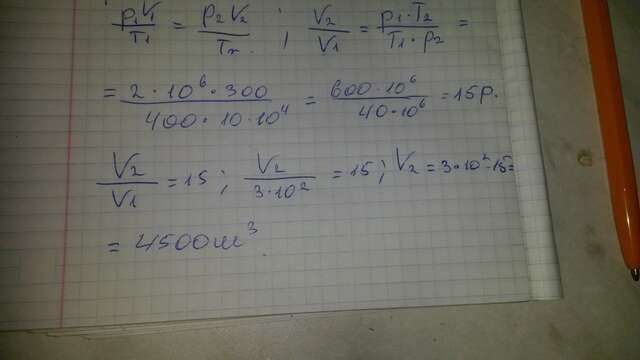 p₁V₁/T₁ = p₂V₂/T₂. ; V₂/V₁ = p₁·T₂/T₁·p₂ =
= 2·10⁶·300/400·10·10⁴ = 600·10⁶/40·10⁶ = 15р.
V₂/V₁ = 15 ; V₂/3·10² = 15 ; V₂ = 3·10²·15 =
= 4500 м³